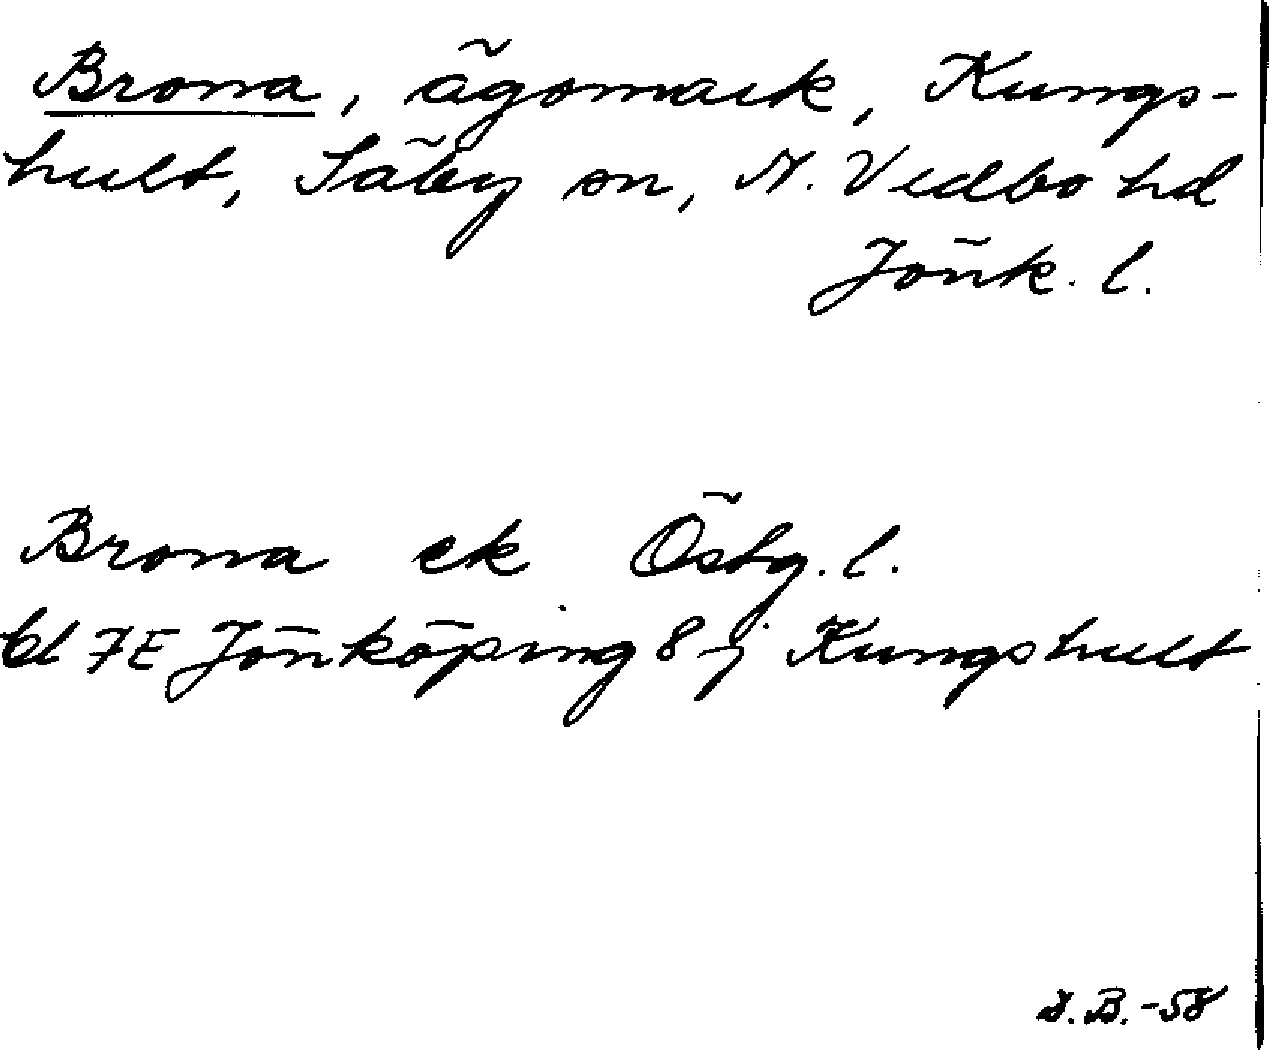 Brona, ägomark, Kungs-
hult, Säby sn, N. Vedbo hd
Jönk. l.
Brona ek Östg. l.
bl 7E Jönköping 8 j Kungshult
B. -58